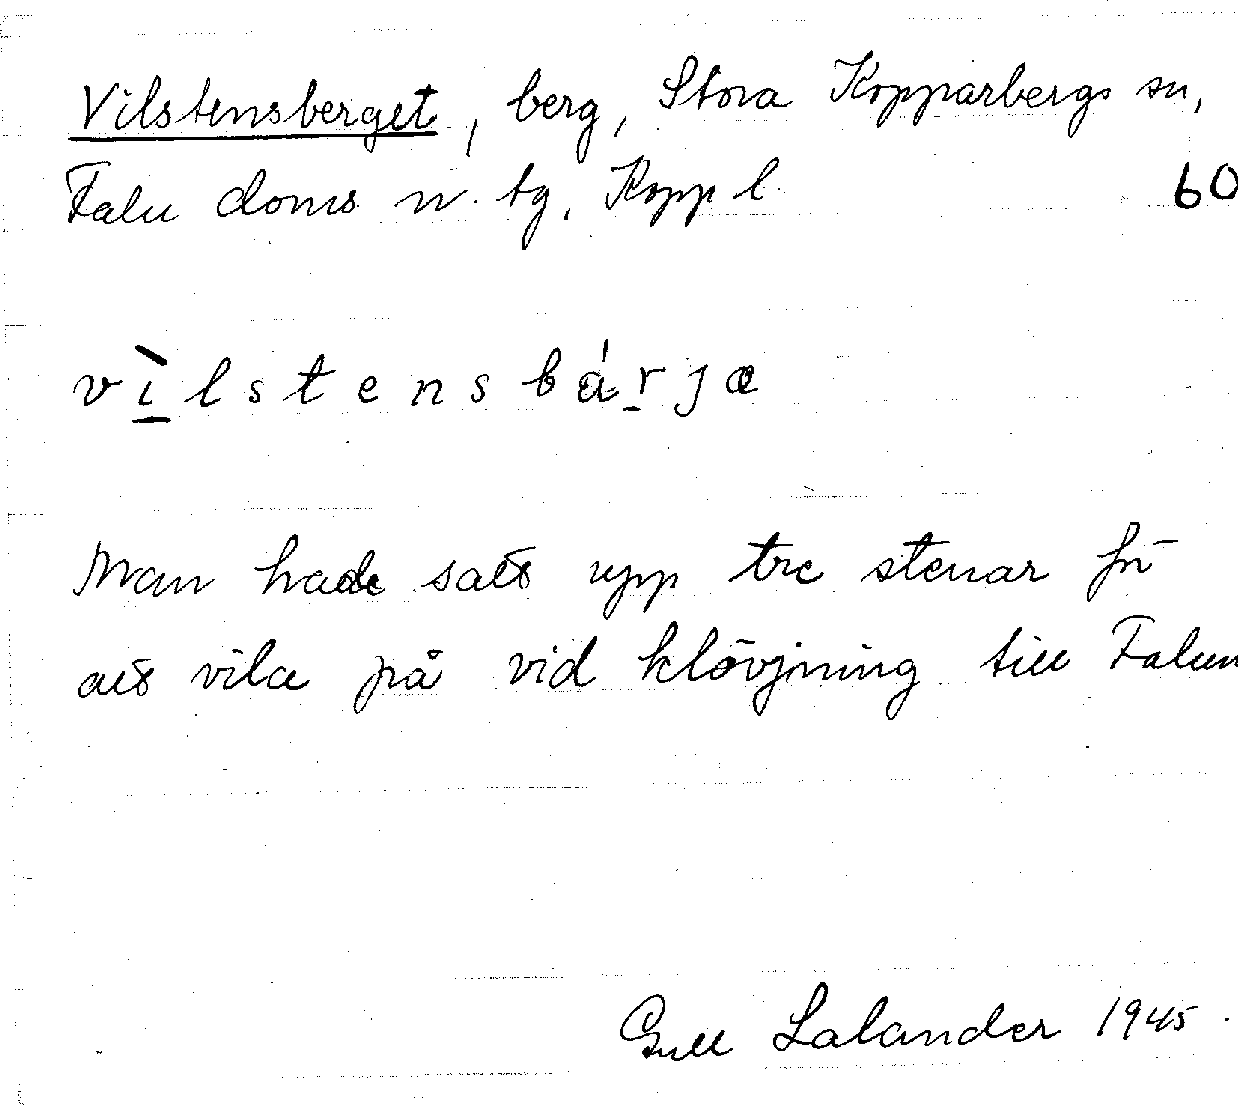 Vilstensberget, berg, Stora Kopparbergs sn,
Falu doms n. tg, Kopp l. 60
vìlstensbárjæ
Man hade satt upp tre stenar för
att vila på vid klövjning till Falun
Gull Lalander 1945.